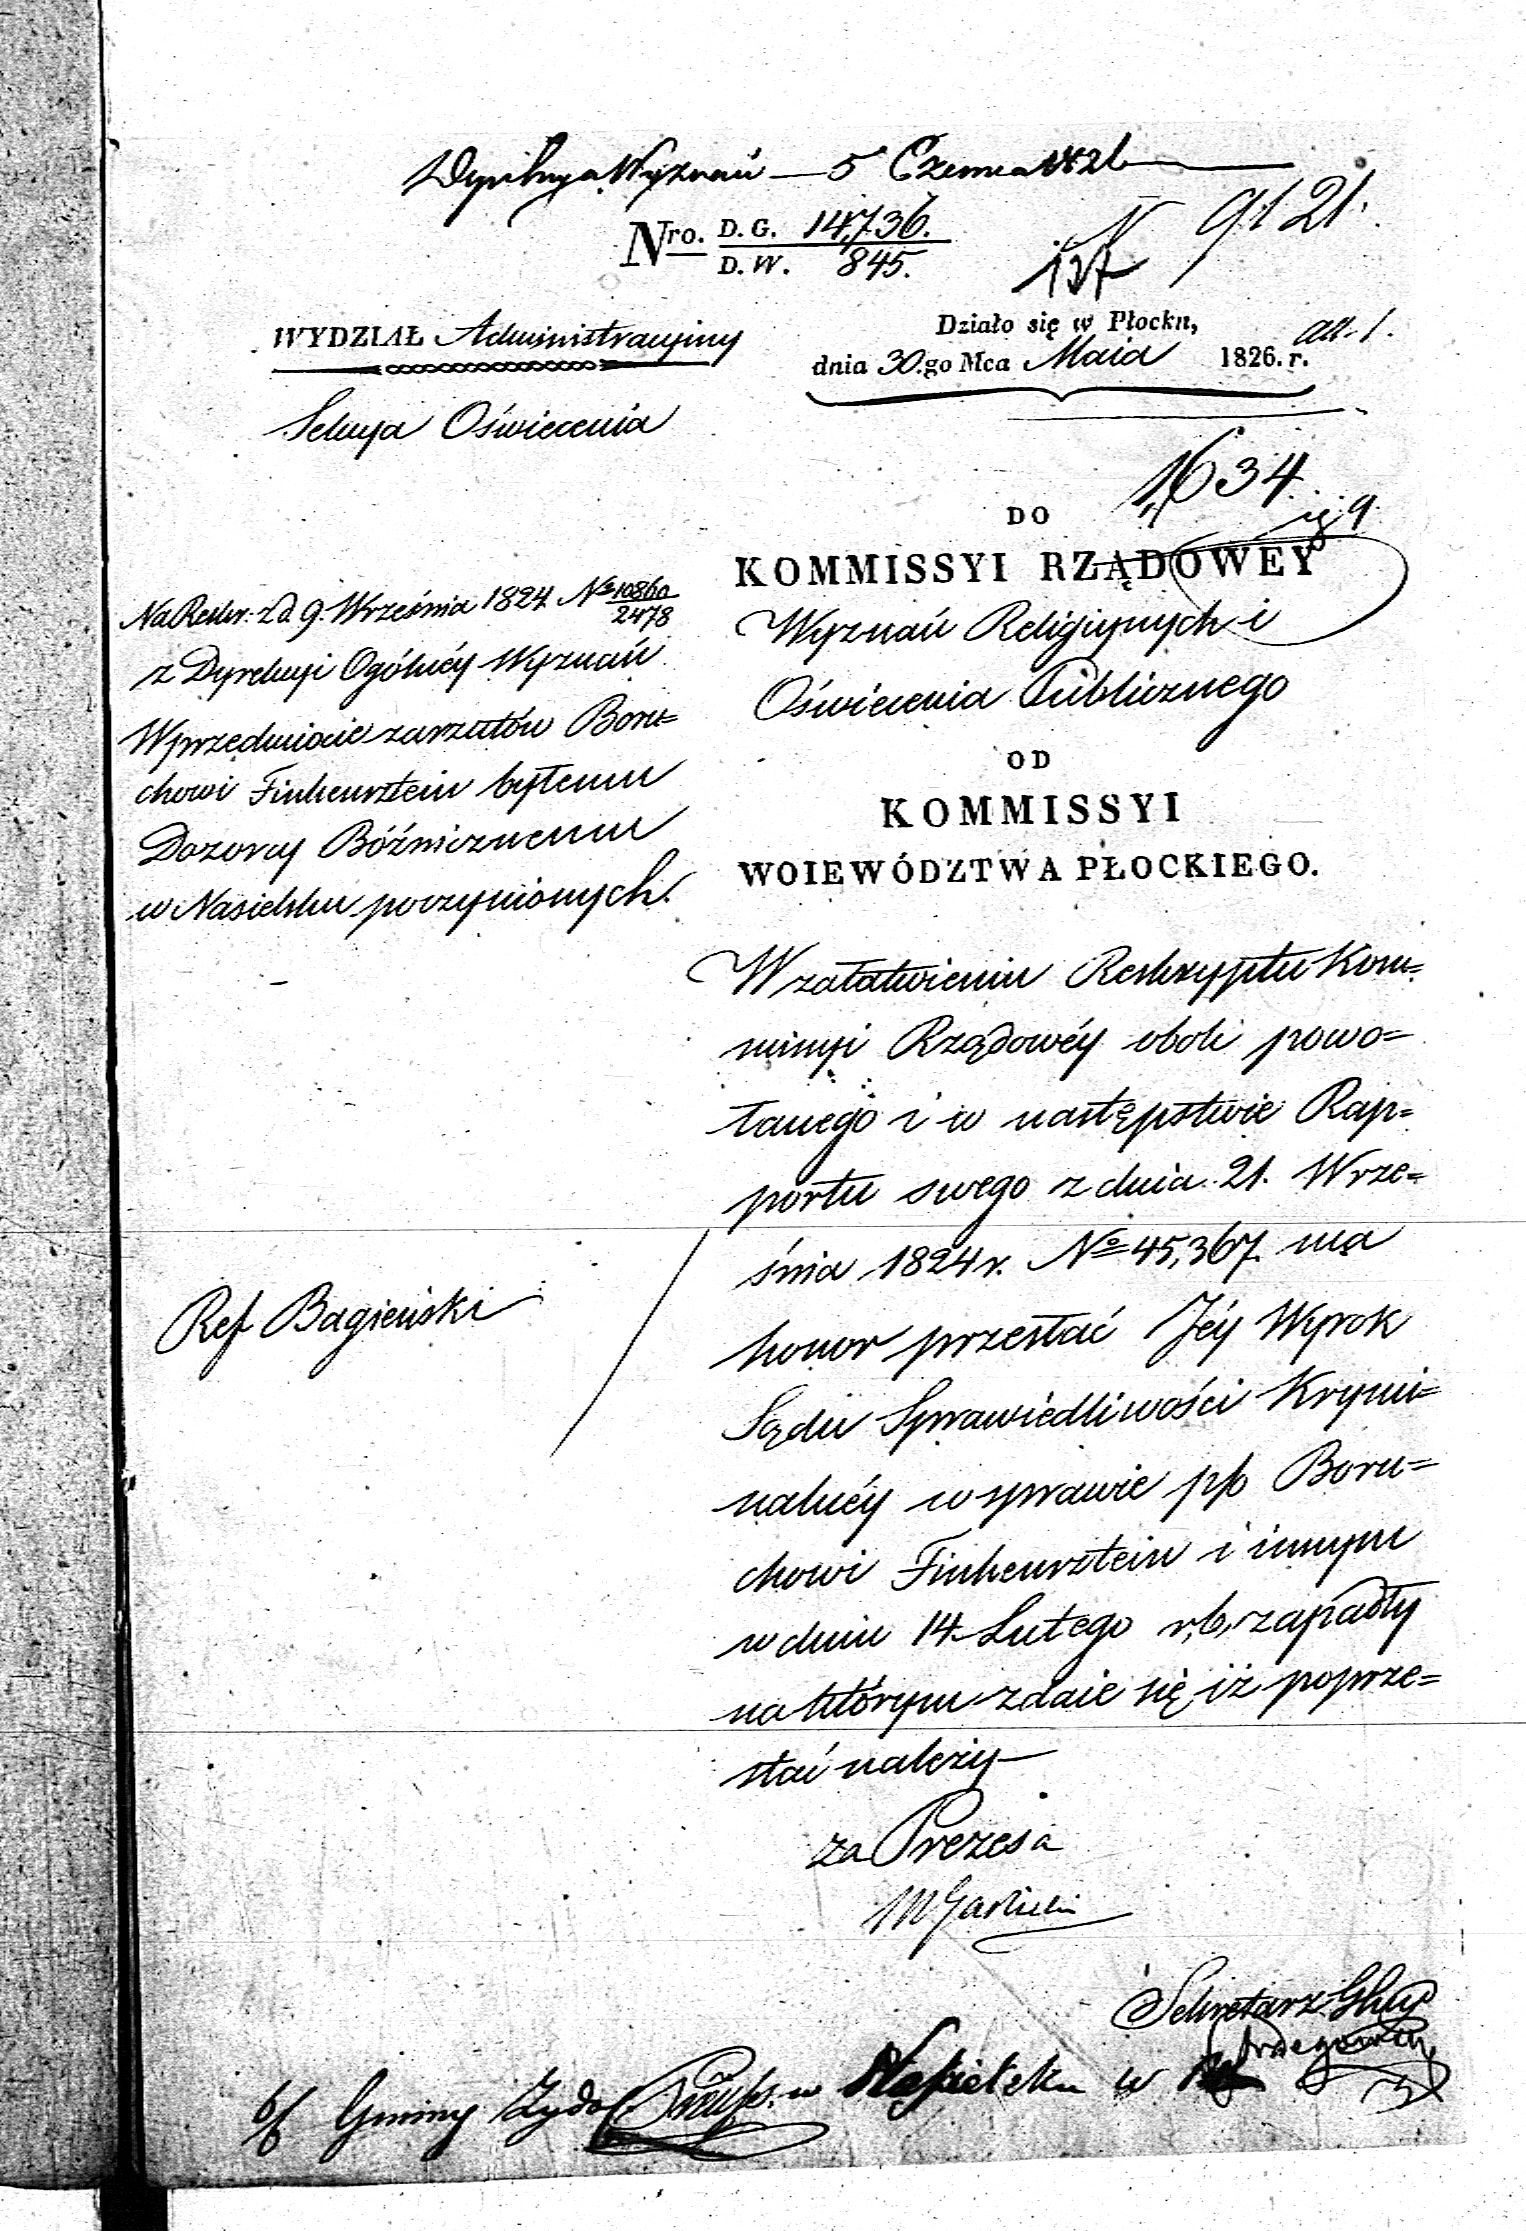 Wyznań — 5 Czerwca 1826
Nro. D. G. 14,736.
D. W. 845.
N 9121.
137
WYDZIAŁ Administracyiny
Sekcya Oświecenia
Działo się w Płocku,
dnia 30.go Mca Maia 1826. r.
all. 1.
1634
DO
KOMMISSYI RZĄDOWEY
Wyznań Religiynych i
Oświecenia Publicznego
OD
KOMMISSYI
WOIEWÓDZTWA PŁOCKIEGO.
Na Reskr. z d. 9. Września 1824 No 10860
2478
z Dyrekcyi Ogólnéy Wyznań
W przedmiocie zarzutów Boru=
chowi Finkensztein byłemu
Dozorcy Bóźnicznemu
w Nasielsku poczynionych.
Ref Bagieński
W załatwieniu Reskryptu Kom=
missyi Rządowéy obok powo=
łanego i w następstwie Rap=
portu swego z dnia 21. Wrze=
śnia 1824 r. No 45,367. ma
honor przesłać Jéy Wyrok
Sądu Sprawiedliwości Krymi=
nalnéy w sprawie p/o Boru=
chowi Finkensztein i innym
w dniu 14 Lutego r. b. zapadły
na którym zdaie się iż poprze=
stać należy
za Prezesa
Sekretarz Glny
Gminy Żydo w Nasielsku w